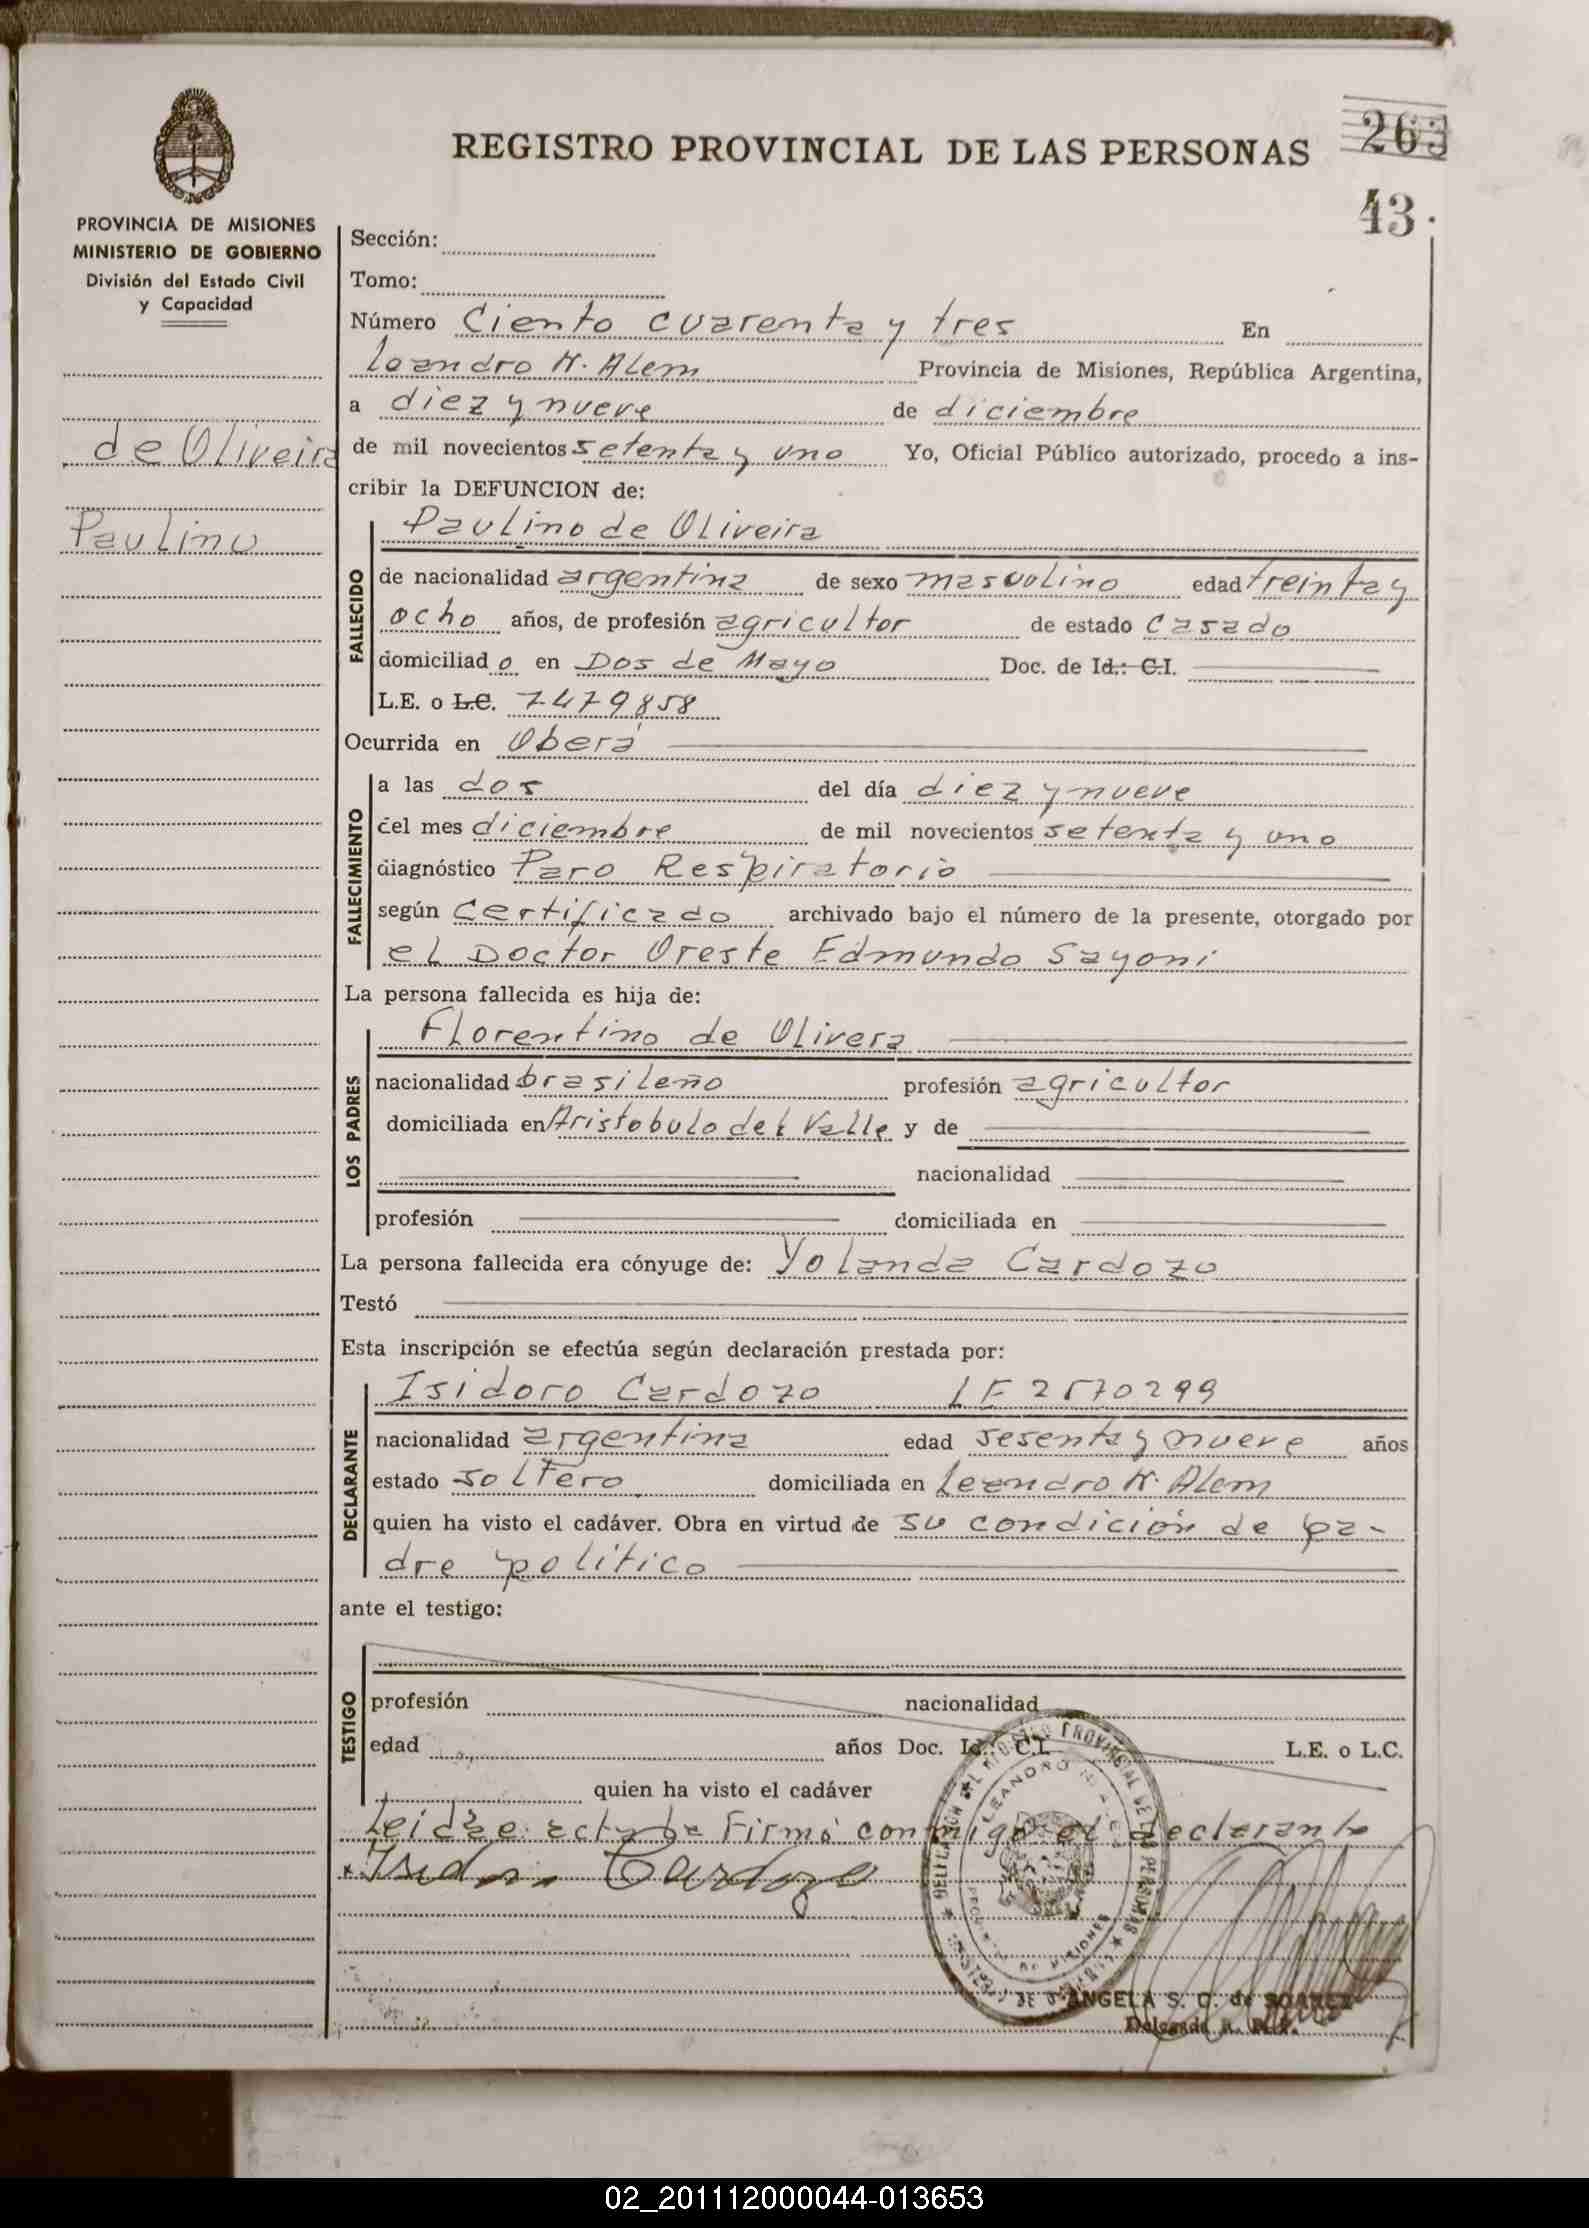 REGISTRO PROVINCIAL DE LAS PERSONAS
263
43.
PROVINCIA DE MISIONES
MINISTERIO DE GOBIERNO
División del Estado Civil
y Capacidad
de Oliveira
Paulino
Sección:
Tomo:
Número Ciento cuarenta y tres En
Leandro N. Alem Provincia de Misiones, República Argentina,
a diez y nueve de diciembre
de mil novecientos setenta y uno Yo, Oficial Público autorizado, procedo a ins-
cribir la DEFUNCION de:
FALLECIDO
Paulino de Oliveira
de nacionalidad argentina de sexo masculino edad treinta y
ocho años, de profesión agricultor de estado casado
domiciliado en Dos de Mayo Doc. de Id.: C.I.
L.E. o L.C. 7479858
Ocurrida en Oberá
FALLECIMIENTO
a las dos del día diez y nueve
del mes diciembre de mil novecientos setenta y uno
diagnóstico Paro Respiratorio
según certificado archivado bajo el número de la presente, otorgado por
el Doctor Oreste Edmundo Sayoni
La persona fallecida es hija de:
LOS PADRES
Florentino de Olivera
nacionalidad brasileño profesión agricultor
domiciliada en Aristobulo del Valle y de
nacionalidad
profesión domiciliada en
La persona fallecida era cónyuge de: Yolanda Cardozo
Testó
Esta inscripción se efectúa según declaración prestada por:
DECLARANTE
Isidoro Cardozo LE 2570299
nacionalidad argentina edad sesenta y nueve años
estado soltero domiciliada en Leandro N. Alem
quien ha visto el cadáver. Obra en virtud de su condición de pa-
dre político
ante el testigo:
TESTIGO
profesión nacionalidad
edad años Doc. Id.: C.I. L.E. o L.C.
quien ha visto el cadáver
Leídae acta la Firmó conmigo el declarante
Isidoro Cardozo
ANGELA S. C. de SOAREZ
Delegada R. P. P.
02_201112000044-013653